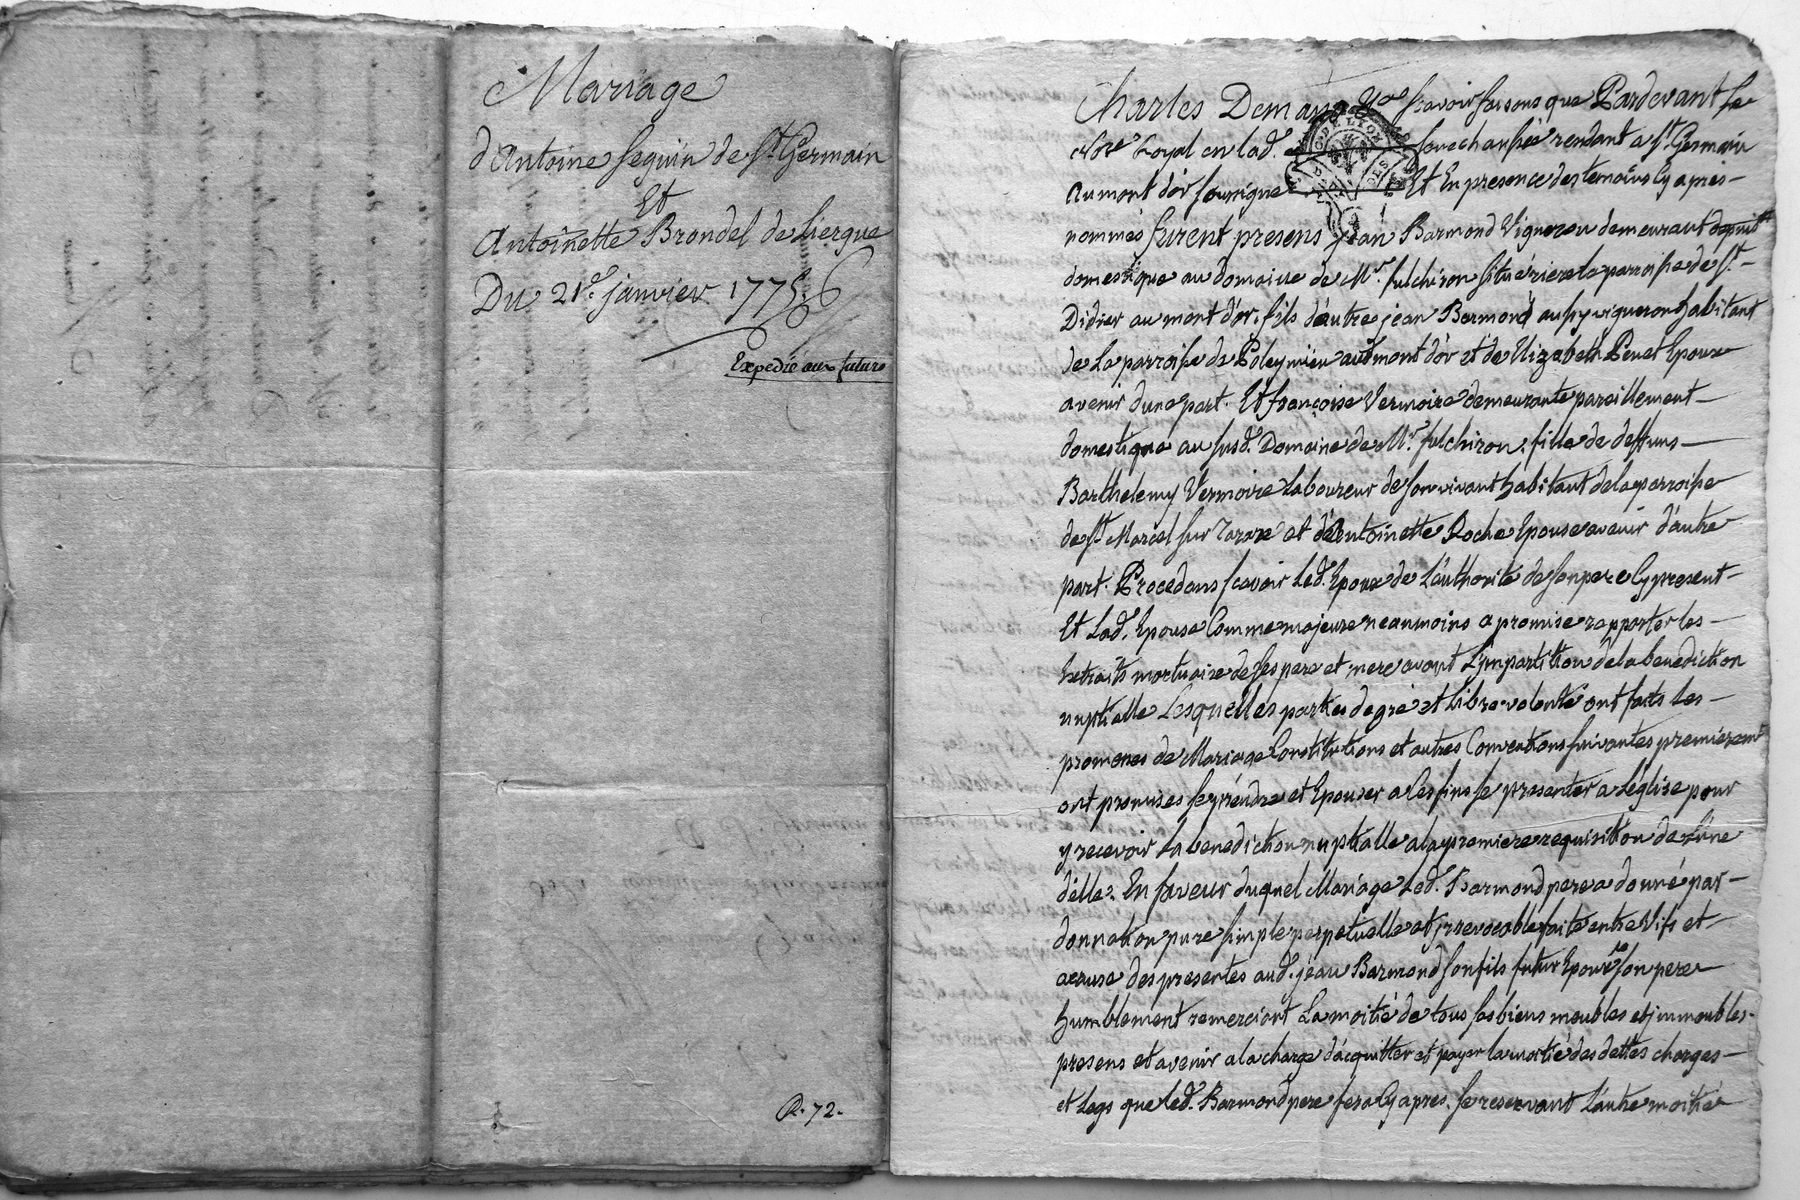 Mariage
d'Antoine Seguin de St. Germain
Et
Antoinette Brondel de Liergue
Du 21e. janvier 1775.
Expedié aux futurs
R. 72.
Charles Demans scavoir faisons que Pardevant le
Nore Royal en lad. senechaussée rendant a St. Germain
au mont d'or soussigné Et En presence des temoins Cy apres
nommés furent presens jean Barmond Vigneron demeurant
domestique au domaine de Mr. fulchiron situé riere la parroisse de St.
Didier au mont d'or, fils d'autre jean Barmond aussy vigneron habitant
de La parroisse de Poleymieu au mont d'or et de Elizabeth Penet Epoux
avenir d'une part. Et françoise Vermoire demeurante pareillement
domestique au susd. Domaine de Mr. fulchiron, fille de deffuns
Barthelemy Vermoire Laboureur de son vivant habitant de la parroisse
de St. Marcel sur Tarare et d'Antoinette Roche Epouse avenir d'autre
part. Procedans scavoir Led. Epoux de L'authorité de son pere Cy present
Et Lad. Epouse Comme majeure neanmoins a promise rapporter les
Extraits mortuaire de ses pere et mere avant L'jmpartition de la benediction
nuptialle Lesquelles parties de gré et Libre volonté ont faits les
promesses de Mariage Constitutions et autres Conventions suivantes premierement
ont promises se prendre et Epouser a Ces fins se presenter a L'église pour
y recevoir La benediction nuptialle a la premiere requisition de L'une
d'elle. En faveur duquel Mariage Led. Barmond pere a donné par
donnation pure simple perpetuelle et jrrevocable faite entre Vifs et
acause des presentes aud. jean Barmond son fils futur Epoux son pere
humblement remerciant La moitié de tous ses biens meubles et jmmeubles
presens et avenir a la charge d'acquitter et payer la moitié des dettes charges
et Legs que led. Barmond pere fera Cy apres, se reservant L'autre moitié